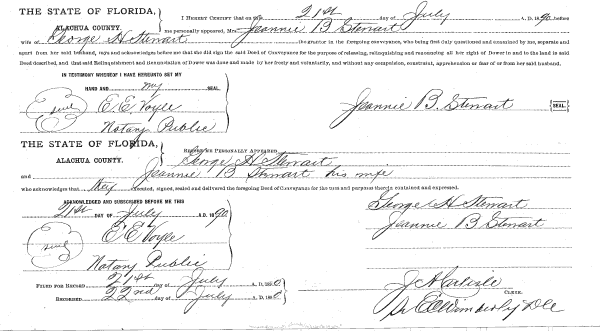 THE STATE OF FLORIDA,
ALACHUA COUNTY.
I HEREBY CERTIFY that on this 21st day of July A. D. 1890, before
me personally appeared, Mrs. Jeannie B Stewart
wife of George H Stewart the grantor in the foregoing conveyance, who being first duly questioned and examined by me, separate and
apart from her said husband, says and acknowledges before me that she did sign the said Deed of Conveyance for the purpose of releasing, relinquishing and renouncing all her right of Dower in and to the land in said
Deed described, and that said Relinquishment and Renunciation of Dower was done and made by her freely and voluntarily, and without any compulsion, constraint, apprehension or fear of or from her said husband.
IN TESTIMONY WHEREOF I HAVE HEREUNTO SET MY
HAND AND my SEAL.
Seal E. E. Voyle
Notary Public
Jeannie B. Stewart SEAL.
THE STATE OF FLORIDA,
ALACHUA COUNTY.
BEFORE ME PERSONALLY APPEARED George H Stewart
and Jeannie B Stewart his wife
who acknowledges that they executed, signed, sealed and delivered the foregoing Deed of Conveyance for the uses and purposes therein contained and expressed.
ACKNOWLEDGED AND SUBSCRIBED BEFORE ME THIS
21st DAY OF July A. D. 1890
Seal E E Voyle
Notary Public
George H Stewart
Jeannie B Stewart
FILED FOR RECORD 21st day of July A. D. 1890
RECORDED 22nd day of July A. D. 1890
J A Carlisle CLERK.
Wimberly D C